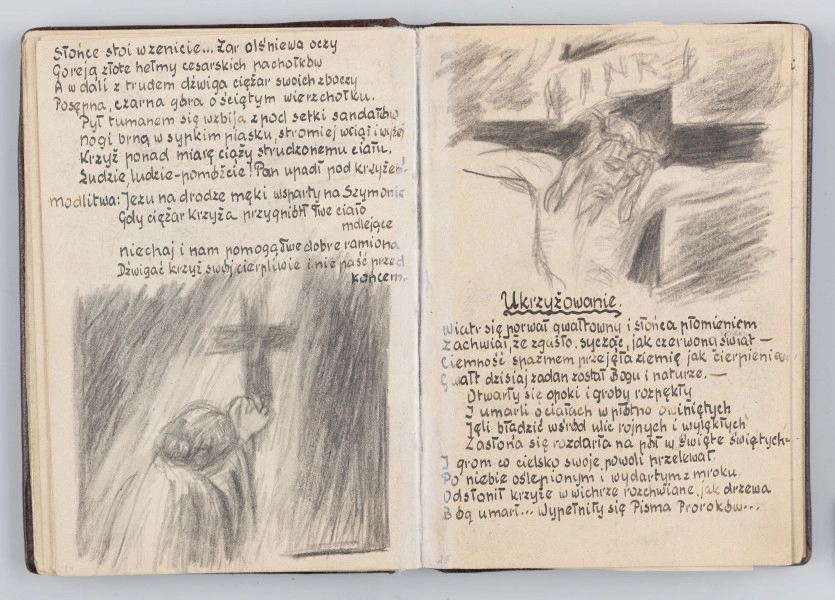 Słońce stoi w zenicie... Żar olśniewa oczy
Goreją złote hełmy cesarskich pachołków
A w dali z trudem dźwiga ciężar swoich zboczy
Posępna, czarna góra o ściętym wierzchołku.
Pył tumanem się wzbija z pod setki sandałów
Nogi brną w sypkim piasku, stromiej wciąż i wyżej
Krzyż ponad miarę ciąży strudzonemu ciału.
Ludzie, ludzie - pomóżcie! Pan upadł pod krzyżem!
Modlitwa: Jezu na drodze męki wsparty na Szymonie
Gdy ciężar krzyża przygniótł Twe ciało
mdlejące
niechaj i nam pomogą Twe dobre ramiona
Dźwigać krzyż swój cierpliwie i nie paść przed
końcem.
INRI
Ukrzyżowanie.
Wiatr się porwał gwałtowny i słońca płomieniem
Zachwiał, że zgasło, sycząc, jak czerwona świat —
Ciemność spazmem przejęła ziemię jak cierpienie
Gwałt dzisiaj zadan został Bogu i naturze. —
Otwarły się opoki i groby rozpękły
I umarli o ciałach w płótno owiniętych
Jęli błądzić wśród ulic rojnych i wylękłych
Zasłona się rozdarła na pół w Święte Świętych -
I grom co cielsko swoje powoli przelewał
Po niebie oślepionym i wydartym z mroku,
Odsłonił krzyże w wichrze rozchwiane, jak drzewa
Bóg umarł... Wypełniły się Pisma Proroków...